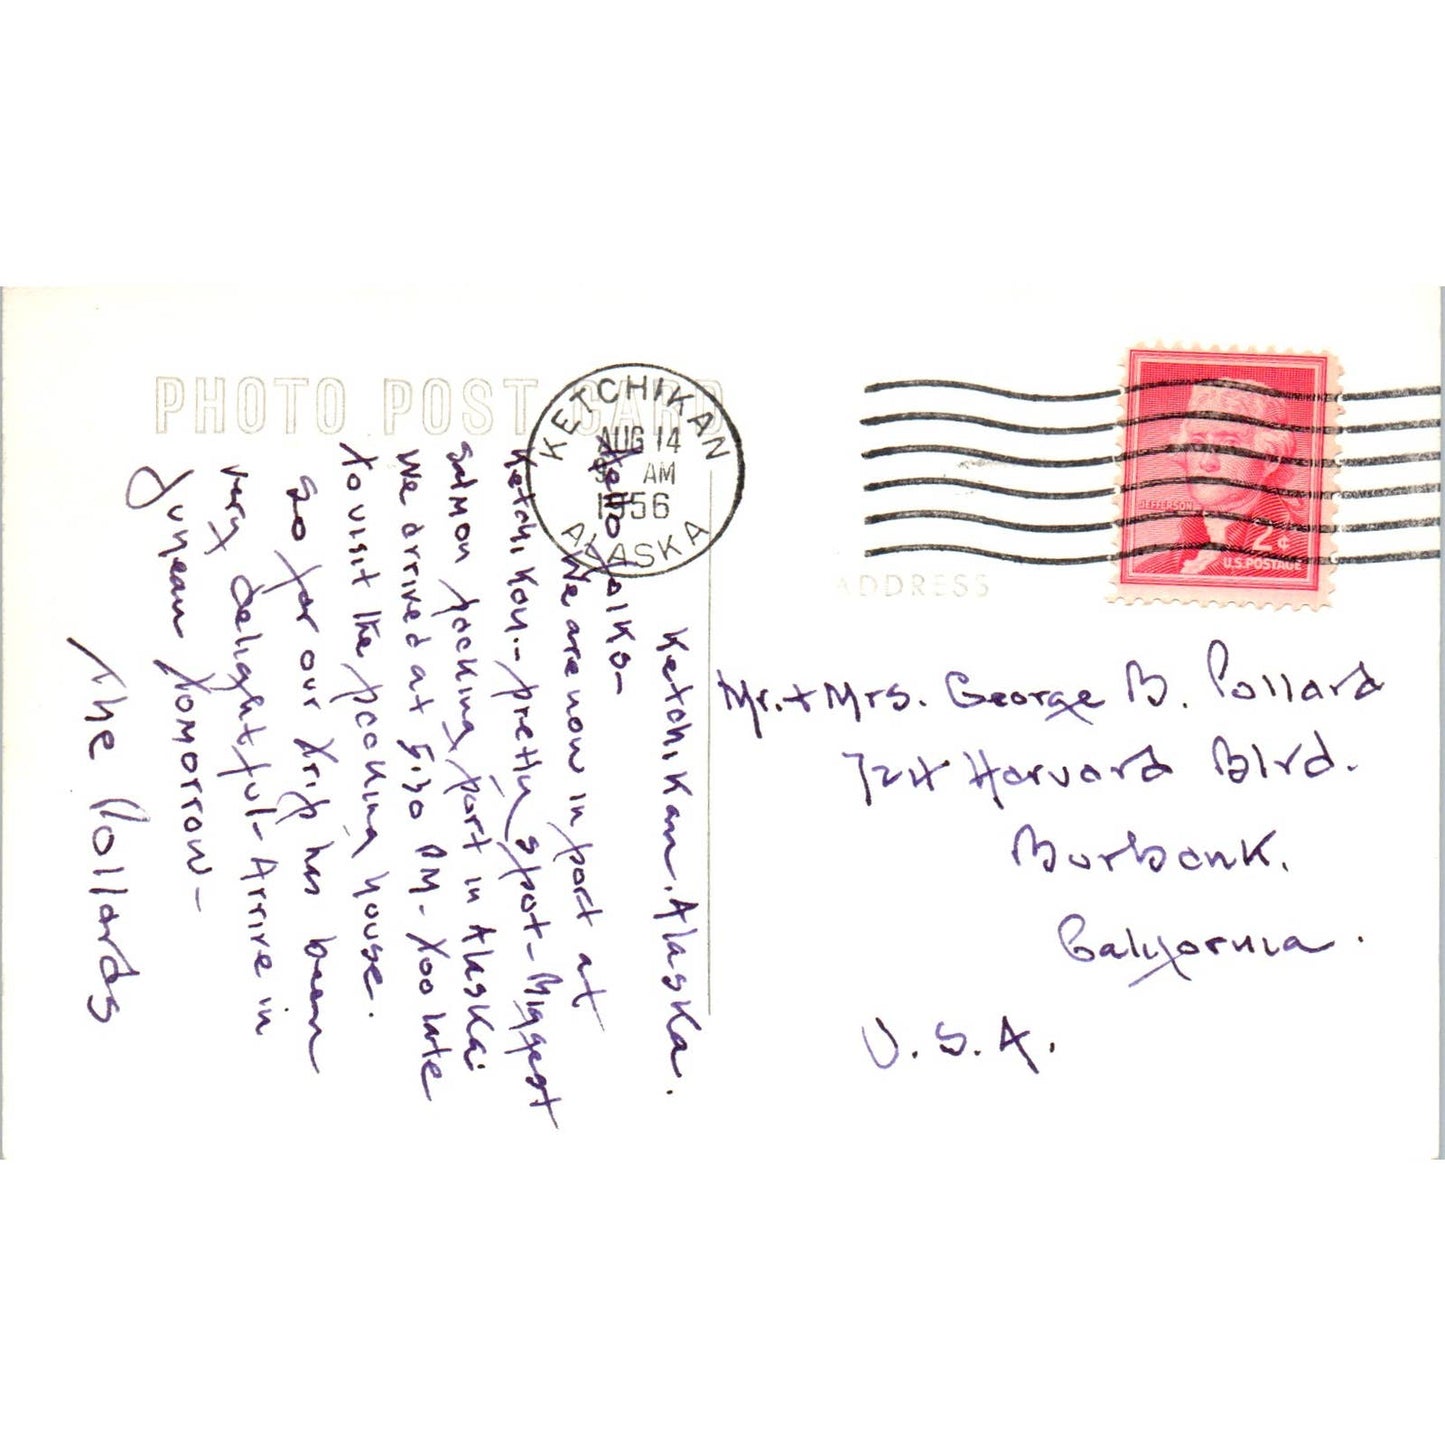 PHOTO POST CARD
KETCHIKAN
AUG 14
AM
1956
ALASKA
JEFFERSON
2¢
U.S. POSTAGE
ADDRESS
Ketchikan, Alaska.
Hello Folks-
We are now in port at
Ketchikan - pretty spot - Biggest
salmon packing port in Alaska.
We arrived at 5:30 PM - too late
to visit the packing house.
So far our trip has been
very delightful - Arrive in
Juneau tomorrow -
The Pollards
Mr. + Mrs. George B. Pollard
724 Harvard Blvd.
Burbank.
California.
U.S.A.